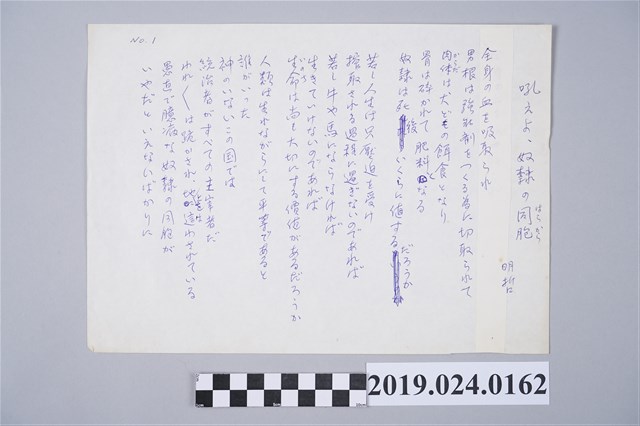 No. 1
吼えよ、奴隷の同胞
はらから
明哲
全身の血を吸取られ
男根は強壮剤をつくる為に切取られて
肉体は犬どもの餌食となり
からだ
骨は砕かれて肥料となる
奴隷は死後いくらに値するだろうか
若し人生は只壓迫を受け
搾取される過程に過ぎないのであれば
若し牛や馬にならなければ
生きていけないのであれば
生命は尚も大切にする價値があるだろうか
いのち
人類は生れながらにして平等であると
誰がいった
神のいないこの国では
統治者がすべての主宰者だ
われ〱は跪かされ、地に這わされている
愚直で臆病な奴隷の同胞が
いやだといえないばかりに
2019.024.0162